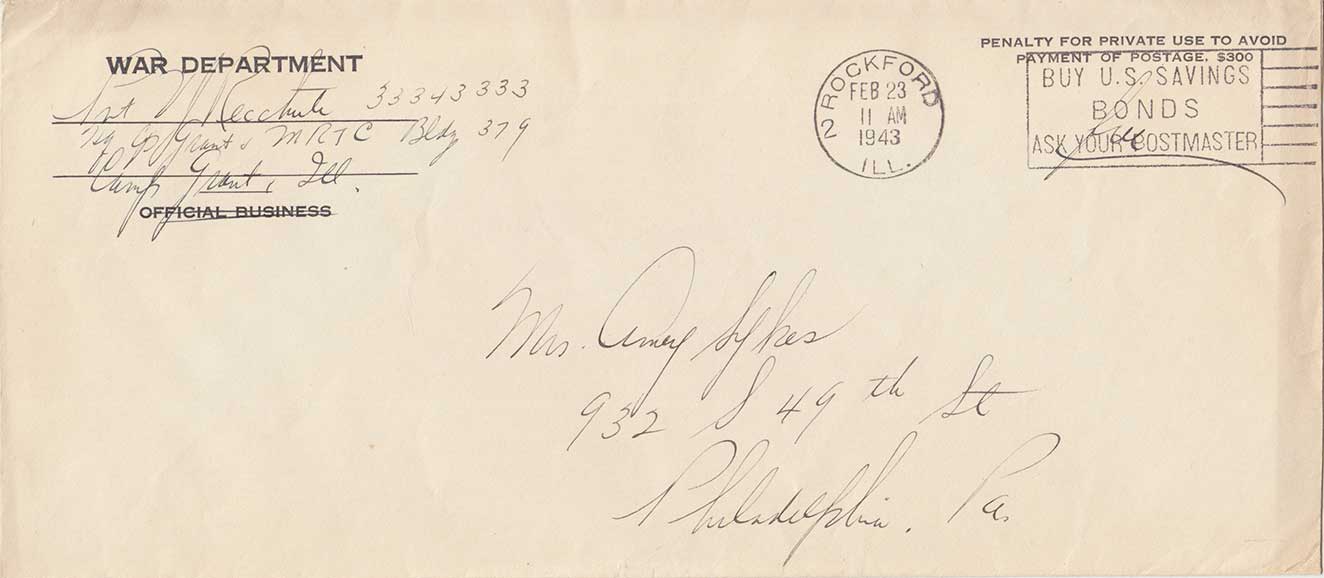 WAR DEPARTMENT
Pvt 33343333
Hq Co Grant MRTC Bldg 379
Camp Grant, Ill.
OFFICIAL BUSINESS
2 ROCKFORD
FEB 23
11 AM
1943
ILL.
PENALTY FOR PRIVATE USE TO AVOID
PAYMENT OF POSTAGE, $300
BUY U.S. SAVINGS
BONDS
ASK YOUR POSTMASTER
Mrs. Amey Sykes
932 S 49th St
Philadelphia, Pa.